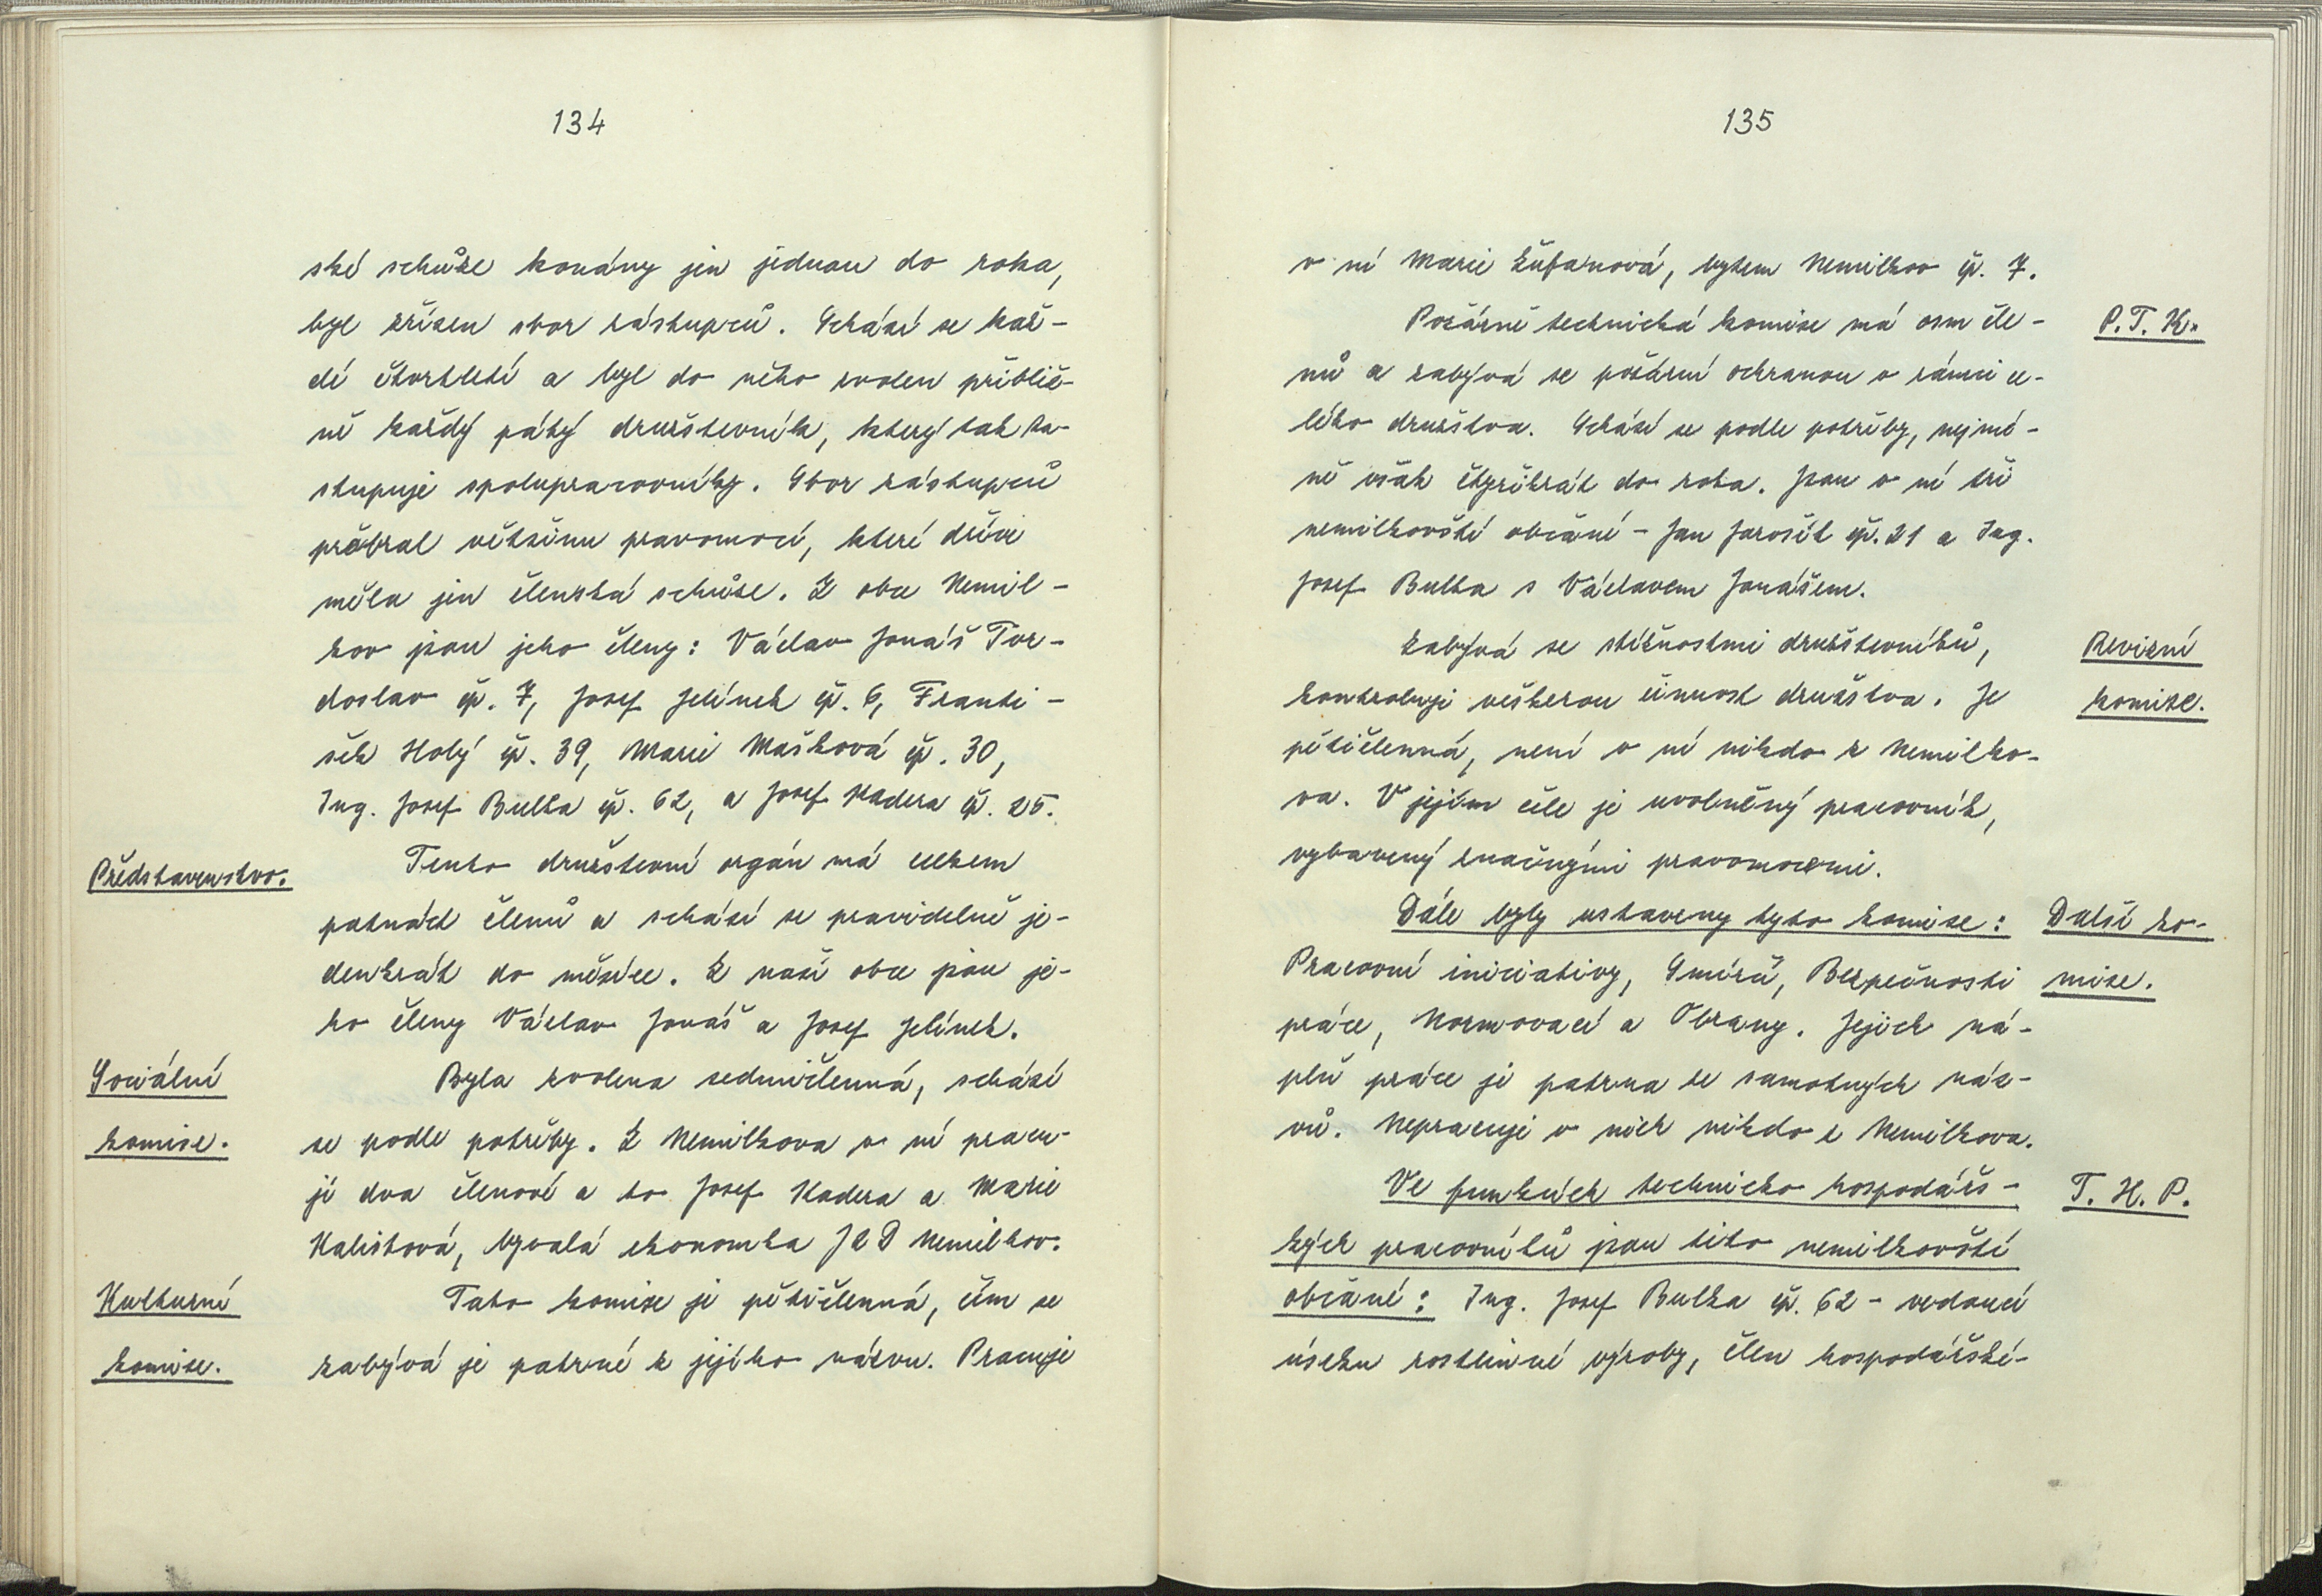 134
ské schůze konány jen jednou do roka,
byl zřízen sbor zástupců. Schází se kaž-
dé čtvrtletí a byl do něho zvolen přibliž-
ně každý pátý družstevník, který tak za-
stupuje spolupracovníky. Sbor zástupců
přebral většinu pravomocí, které dříve
měla jen členská schůze. Z obce Nemil-
kov jsou jeho členy: Václav Jonáš Tvr-
doslav čp. 7, Josef Jelínek čp. 6, Franti-
šek Holý čp. 39, Marie Mašková čp. 30,
Ing. Josef Bulka čp. 62, a Josef Kadera čp. 25.
Představenstvo.
Tento družstevní orgán má celkem
patnáct členů a schází se pravidelně je-
denkrát do měsíce. Z naší obce jsou je-
ho členy Václav Jonáš a Josef Jelínek.
Sociální
komise.
Byla zvolena sedmičlenná, schází
se podle potřeby. Z Nemilkova v ní pracu-
jí dva členové a to Josef Kadera a Marie
Kalistová, bývalá ekonomka JZD Nemilkov.
Kulturní
komise.
Tato komise je pětičlenná, čím se
zabývá je patrné z jejího názvu. Pracuje
135
v ní Marie Županová, bytem Nemilkov čp. 7.
P. T. K.
Požárně technická komise má osm čle-
nů a zabývá se požární ochranou v rámci ce-
lého družstva. Schází se podle potřeby, nejmé-
ně však čtyřikrát do roka. Jsou v ní tři
nemilkovští občané - Jan Jarošík čp. 21 a Ing.
Josef Bulka s Václavem Jonášem.
Revizní
komise.
Zabývá se stížnostmi družstevníků,
kontroluje veškerou činnost družstva. Je
pětičlenná, není v ní nikdo z Nemilko-
va. V jejím čele je uvolněný pracovník,
vybavený značnými pravomocemi.
Další ko-
mise.
Dále byly ustaveny tyto komise:
Pracovní iniciativy, Smírčí, Bezpečnosti
práce, Normovací a Obrany. Jejich ná-
plň práce je patrna ze samotných náz-
vů. Nepracuje v nich nikdo z Nemilkova.
T. H. P.
Ve funkcích technicko hospodářs-
kých pracovníků jsou tito nemilkovští
občané: Ing. Josef Bulka čp. 62 - vedoucí
úseku rostlinné výroby, člen hospodářské-